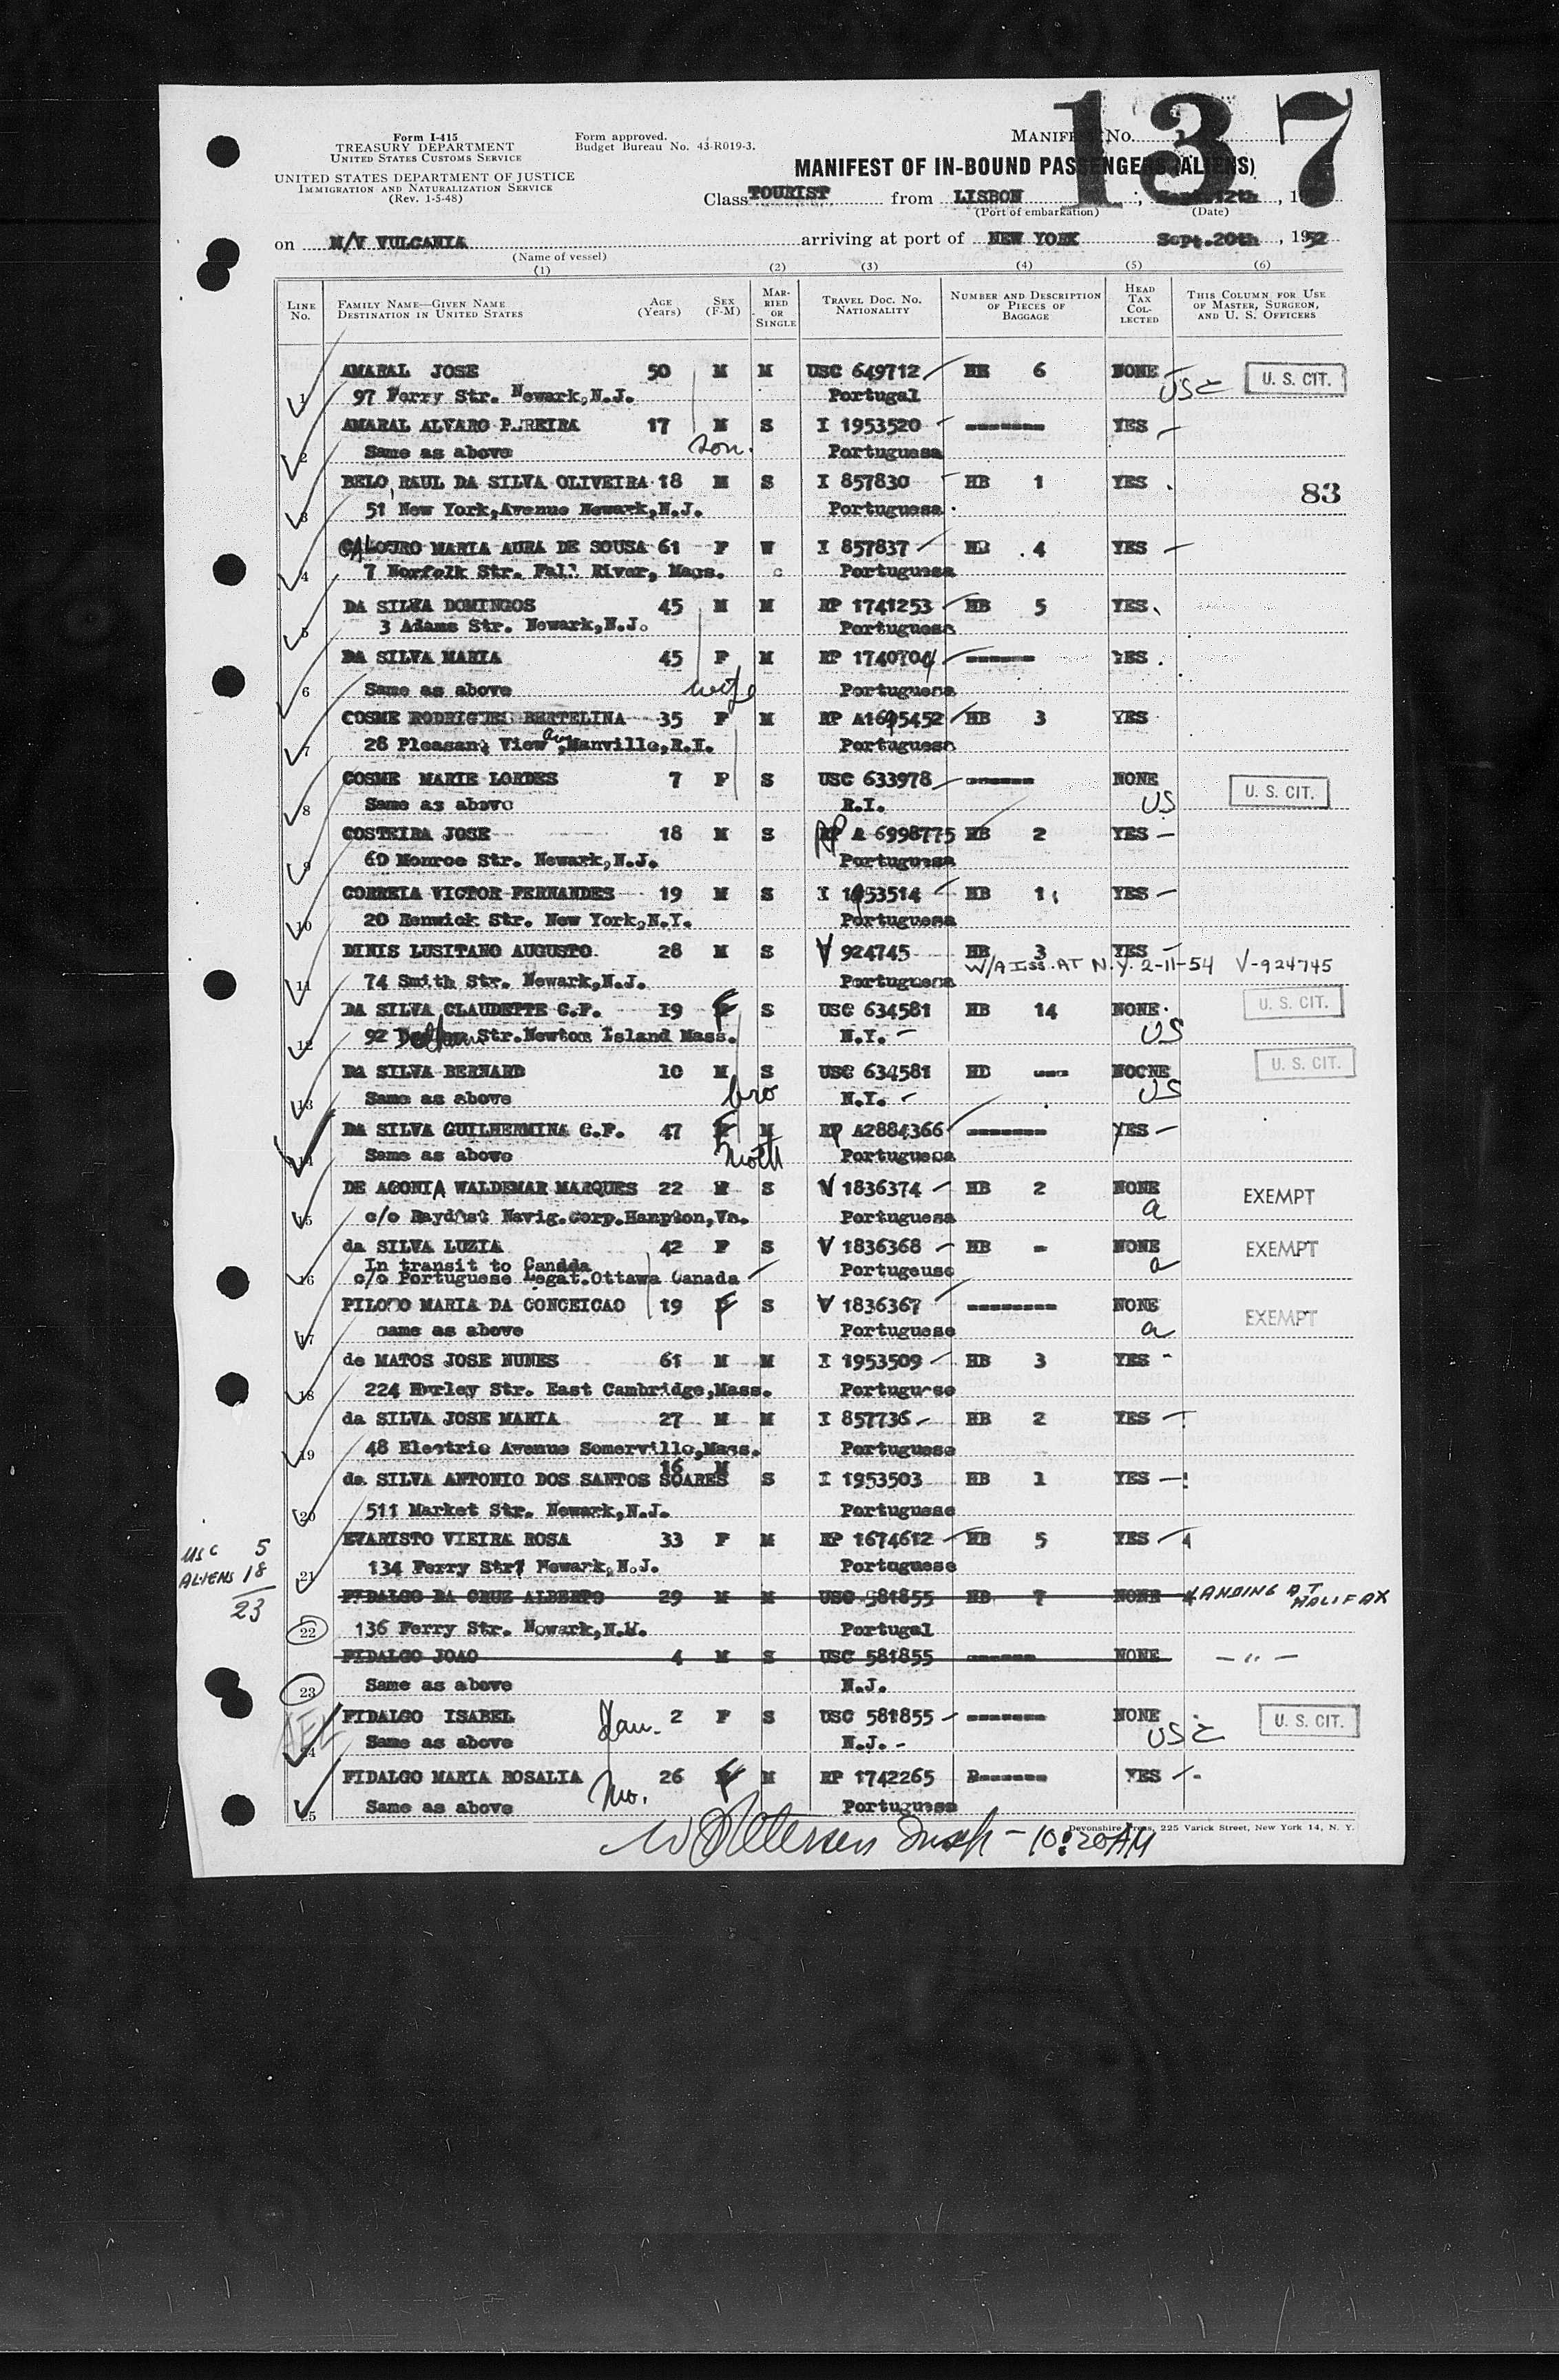 137
Form I-415
TREASURY DEPARTMENT
UNITED STATES CUSTOMS SERVICE
UNITED STATES DEPARTMENT OF JUSTICE
IMMIGRATION AND NATURALIZATION SERVICE
(Rev. 1-5-48)
Form approved.
Budget Bureau No. 43-R019-3.
MANIFEST No.
MANIFEST OF IN-BOUND PASSENGERS (ALIENS)
Class TOURIST from LISBON, Sept. 12th, 19
(Port of embarkation) (Date)
on M/V VULCANIA arriving at port of NEW YORK Sept.20th, 1952
(Name of vessel)
(1) (2) (3) (4) (5) (6)
LINE No. FAMILY NAME—GIVEN NAME DESTINATION IN UNITED STATES AGE (Years) SEX (F-M) MARRIED OR SINGLE TRAVEL DOC. NO. NATIONALITY NUMBER AND DESCRIPTION OF PIECES OF BAGGAGE HEAD TAX COLLECTED THIS COLUMN FOR USE OF MASTER, SURGEON, AND U. S. OFFICERS
AMARAL JOSE 50 M M USC 649712 HB 6 NONE USC U. S. CIT.
1 97 Ferry Str. Newark,N.J. Portugal
AMARAL ALVARO PEREIRA 17 M S I 1953520 ------- YES
2 Same as above son. Portuguese
BELO RAUL DA SILVA OLIVEIRA 18 M S I 857830 HB 1 YES 83
3 51 New York,Avenue Newark,N.J. Portuguese
CALOURO MARIA AURA DE SOUSA 61 F W I 857837 HB 4 YES
4 7 Norfolk Str. Fall River, Mass. Portuguese
DA SILVA DOMINGOS 45 M M RP 1741253 HB 5 YES
5 3 Adams Str. Newark,N.J. Portuguese
DA SILVA MARIA 45 F M RP 1740704 ------- YES
6 Same as above wife Portuguese
COSME RODRIGUES BERTELINA 35 F M RP A1695452 HB 3 YES
7 28 Pleasant View Av,Manville,R.I. Portuguese
COSME MARIE LORDES 7 F S USC 633978 ------- NONE U. S. CIT.
8 Same as above R.I. US
COSTEIRA JOSE 18 M S RP A 6998775 HB 2 YES
9 60 Monroe Str. Newark,N.J. Portuguese
CORREIA VICTOR FERNANDES 19 M S I 1953514 HB 1 YES
10 20 Renwick Str. New York,N.Y. Portuguese
DINIS LUSITANO AUGUSTO 28 M S V 924745 HB 3 YES
W/A ISS. AT N.Y. 2-11-54 V-924745
11 74 Smith Str. Newark,N.J. Portuguese
DA SILVA CLAUDETTE C.F. 19 F S USC 634581 HB 14 NONE U. S. CIT.
12 92 Str.Newton Island Mass. N.Y. US
DA SILVA BERNARD 10 M S USC 634581 HB --- NOCNE U. S. CIT.
13 Same as above bro N.Y. US
DA SILVA GUILHERMINA C.F. 47 F M RP A2884366 ------- YES
14 Same as above moth Portuguese
DE AGONIA WALDEMAR MARQUES 22 M S V 1836374 HB 2 NONE EXEMPT
15 c/o Navig.Corp.Hampton,Va. Portuguese a
da SILVA LUZIA 42 F S V 1836368 HB - NONE EXEMPT
In transit to Canada
16 c/o Portuguese Legat.Ottawa Canada Portugeuse a
PILOTO MARIA DA CONCEICAO 19 F S V 1836367 -------- NONE EXEMPT
17 same as above Portuguese a
de MATOS JOSE NUNES 61 M M I 1953509 HB 3 YES
18 224 Hurley Str. East Cambridge,Mass. Portuguese
da SILVA JOSE MARIA 27 M M I 857736 HB 2 YES
19 48 Electric Avenue Somerville,Mass. Portuguese
da SILVA ANTONIO DOS SANTOS SOARES 16 M S I 1953503 HB 1 YES
20 511 Market Str. Newark,N.J. Portuguese
EVARISTO VIEIRA ROSA 33 F M RP 1674612 HB 5 YES
21 134 Ferry Str. Newark,N.J. Portuguese
USC 5
ALIENS 18
23
FIDALGO DA CRUZ ALBERTO 29 M M USC 581855 HB 7 NONE LANDING AT HALIFAX
22 136 Ferry Str. Newark,N.M. Portugal
FIDALGO JOAO 4 M S USC 581855 ------- NONE — " —
23 Same as above N.J.
FIDALGO ISABEL 2 F S USC 581855 ------- NONE U. S. CIT.
24 Same as above Dau. N.J. USC
FIDALGO MARIA ROSALIA 26 F M RP 1742265 B------ YES
25 Same as above Mo. Portuguese
Devonshire Press, 225 Varick Street, New York 14, N. Y.
W Petersen Insp - 10:20AM